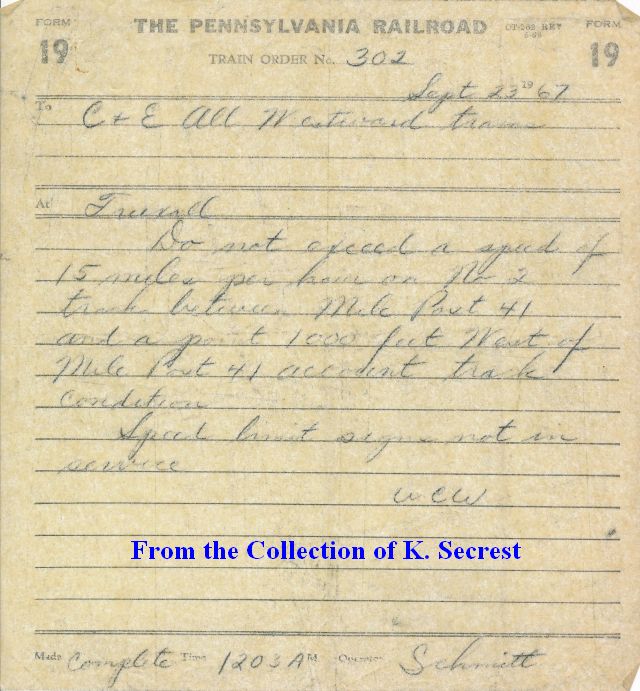 FORM 19
THE PENNSYLVANIA RAILROAD
FORM 19
TRAIN ORDER No. 302
Sept 23 1967
To C + E All Westward trains
At Truxall
Do not exceed a speed of
15 miles per hour on No 2
track between Mile Post 41
and a point 1000 feet West of
Mile Post 41 account track
condition
Speed limit signs not in
service
WCW
From the Collection of K. Secrest
Made Complete Time 1203 AM Operator Schmitt